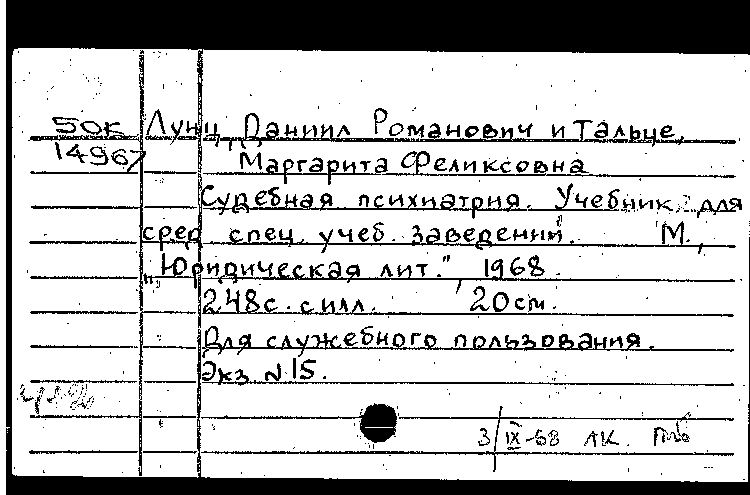 50К Лунц, Даниил Романович и Тальце,
14967 Маргарита Феликсовна
Судебная психиатрия. Учебник для
сред. спец. учеб. заведений. М.,
„Юридическая лит.", 1968.
248с. с илл. 20см.
Для служебного пользования.
Экз. N 15.
3/IX-68 ЛК.